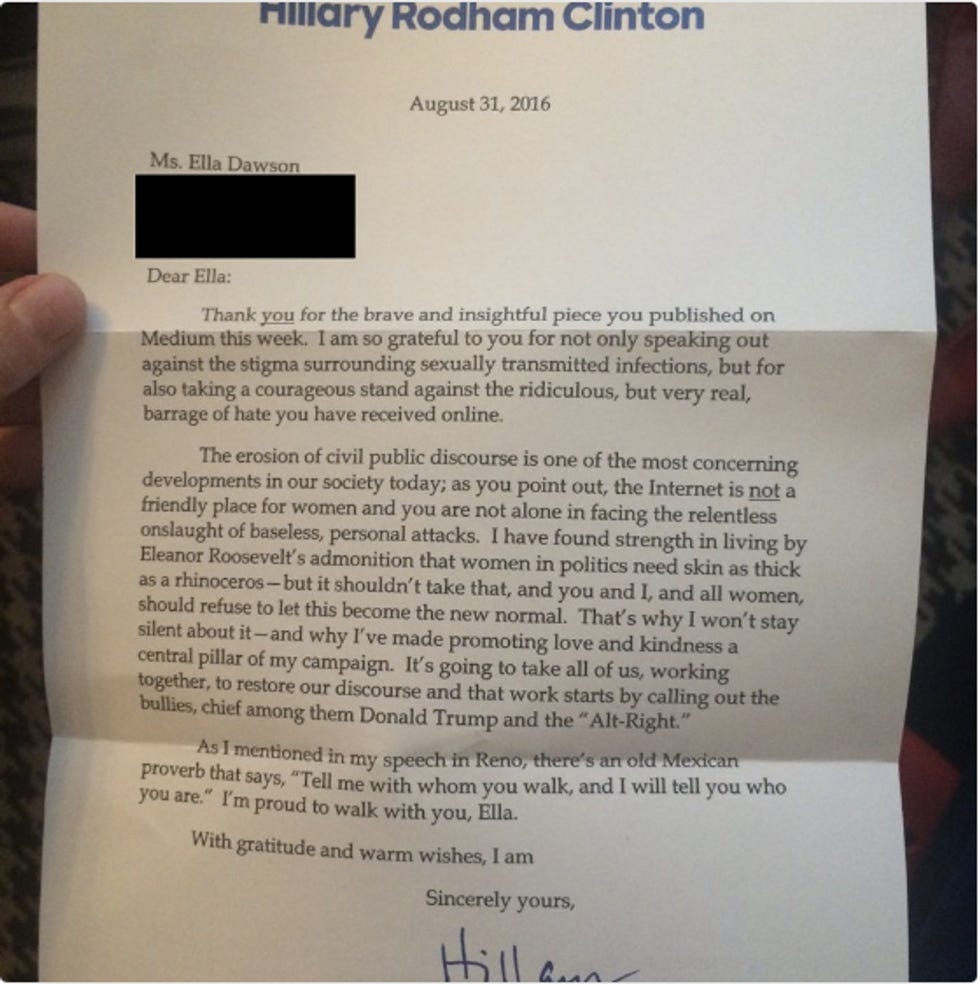 Hillary Rodham Clinton
August 31, 2016
Ms. Ella Dawson
Dear Ella:
Thank you for the brave and insightful piece you published on
Medium this week. I am so grateful to you for not only speaking out
against the stigma surrounding sexually transmitted infections, but for
also taking a courageous stand against the ridiculous, but very real,
barrage of hate you have received online.
The erosion of civil public discourse is one of the most concerning
developments in our society today; as you point out, the Internet is not a
friendly place for women and you are not alone in facing the relentless
onslaught of baseless, personal attacks. I have found strength in living by
Eleanor Roosevelt's admonition that women in politics need skin as thick
as a rhinoceros—but it shouldn't take that, and you and I, and all women,
should refuse to let this become the new normal. That's why I won't stay
silent about it—and why I've made promoting love and kindness a
central pillar of my campaign. It's going to take all of us, working
together, to restore our discourse and that work starts by calling out the
bullies, chief among them Donald Trump and the "Alt-Right."
As I mentioned in my speech in Reno, there's an old Mexican
proverb that says, "Tell me with whom you walk, and I will tell you who
you are." I'm proud to walk with you, Ella.
With gratitude and warm wishes, I am
Sincerely yours,
Hillary